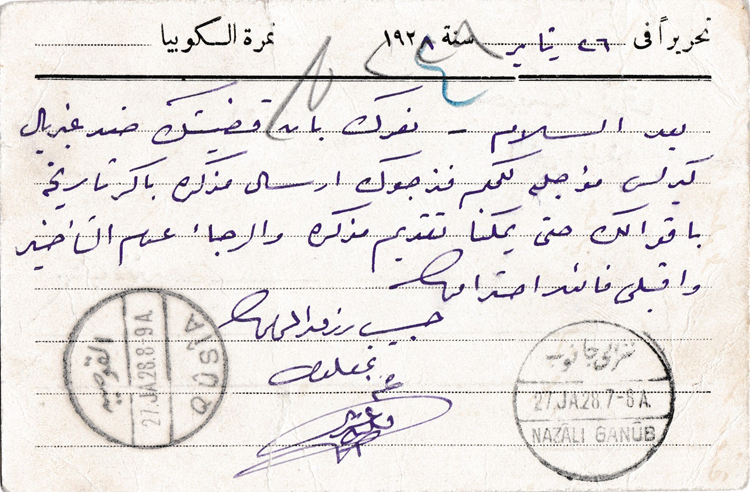 تحريراً فى ٢٦ يناير سنة ١٩٢٨ نمرة السكوبيا
بعد السلام - نعرفك بان قضيتك ضد غبريال
كيرلس مؤجله للحكم فنرجوك ارسال مذكره باكر تاريخه
باقوالك حتى يمكننا تقديم مذكره والرجاء عدم التأخير
واقبلى فائق احترامى
حبيب رزق الله
QÛSÎYA
القوصية
27.JA.28.8-9A.
نزالى جانوب
27.JA.28 7-8 A.
NAZÂLI GANÛB